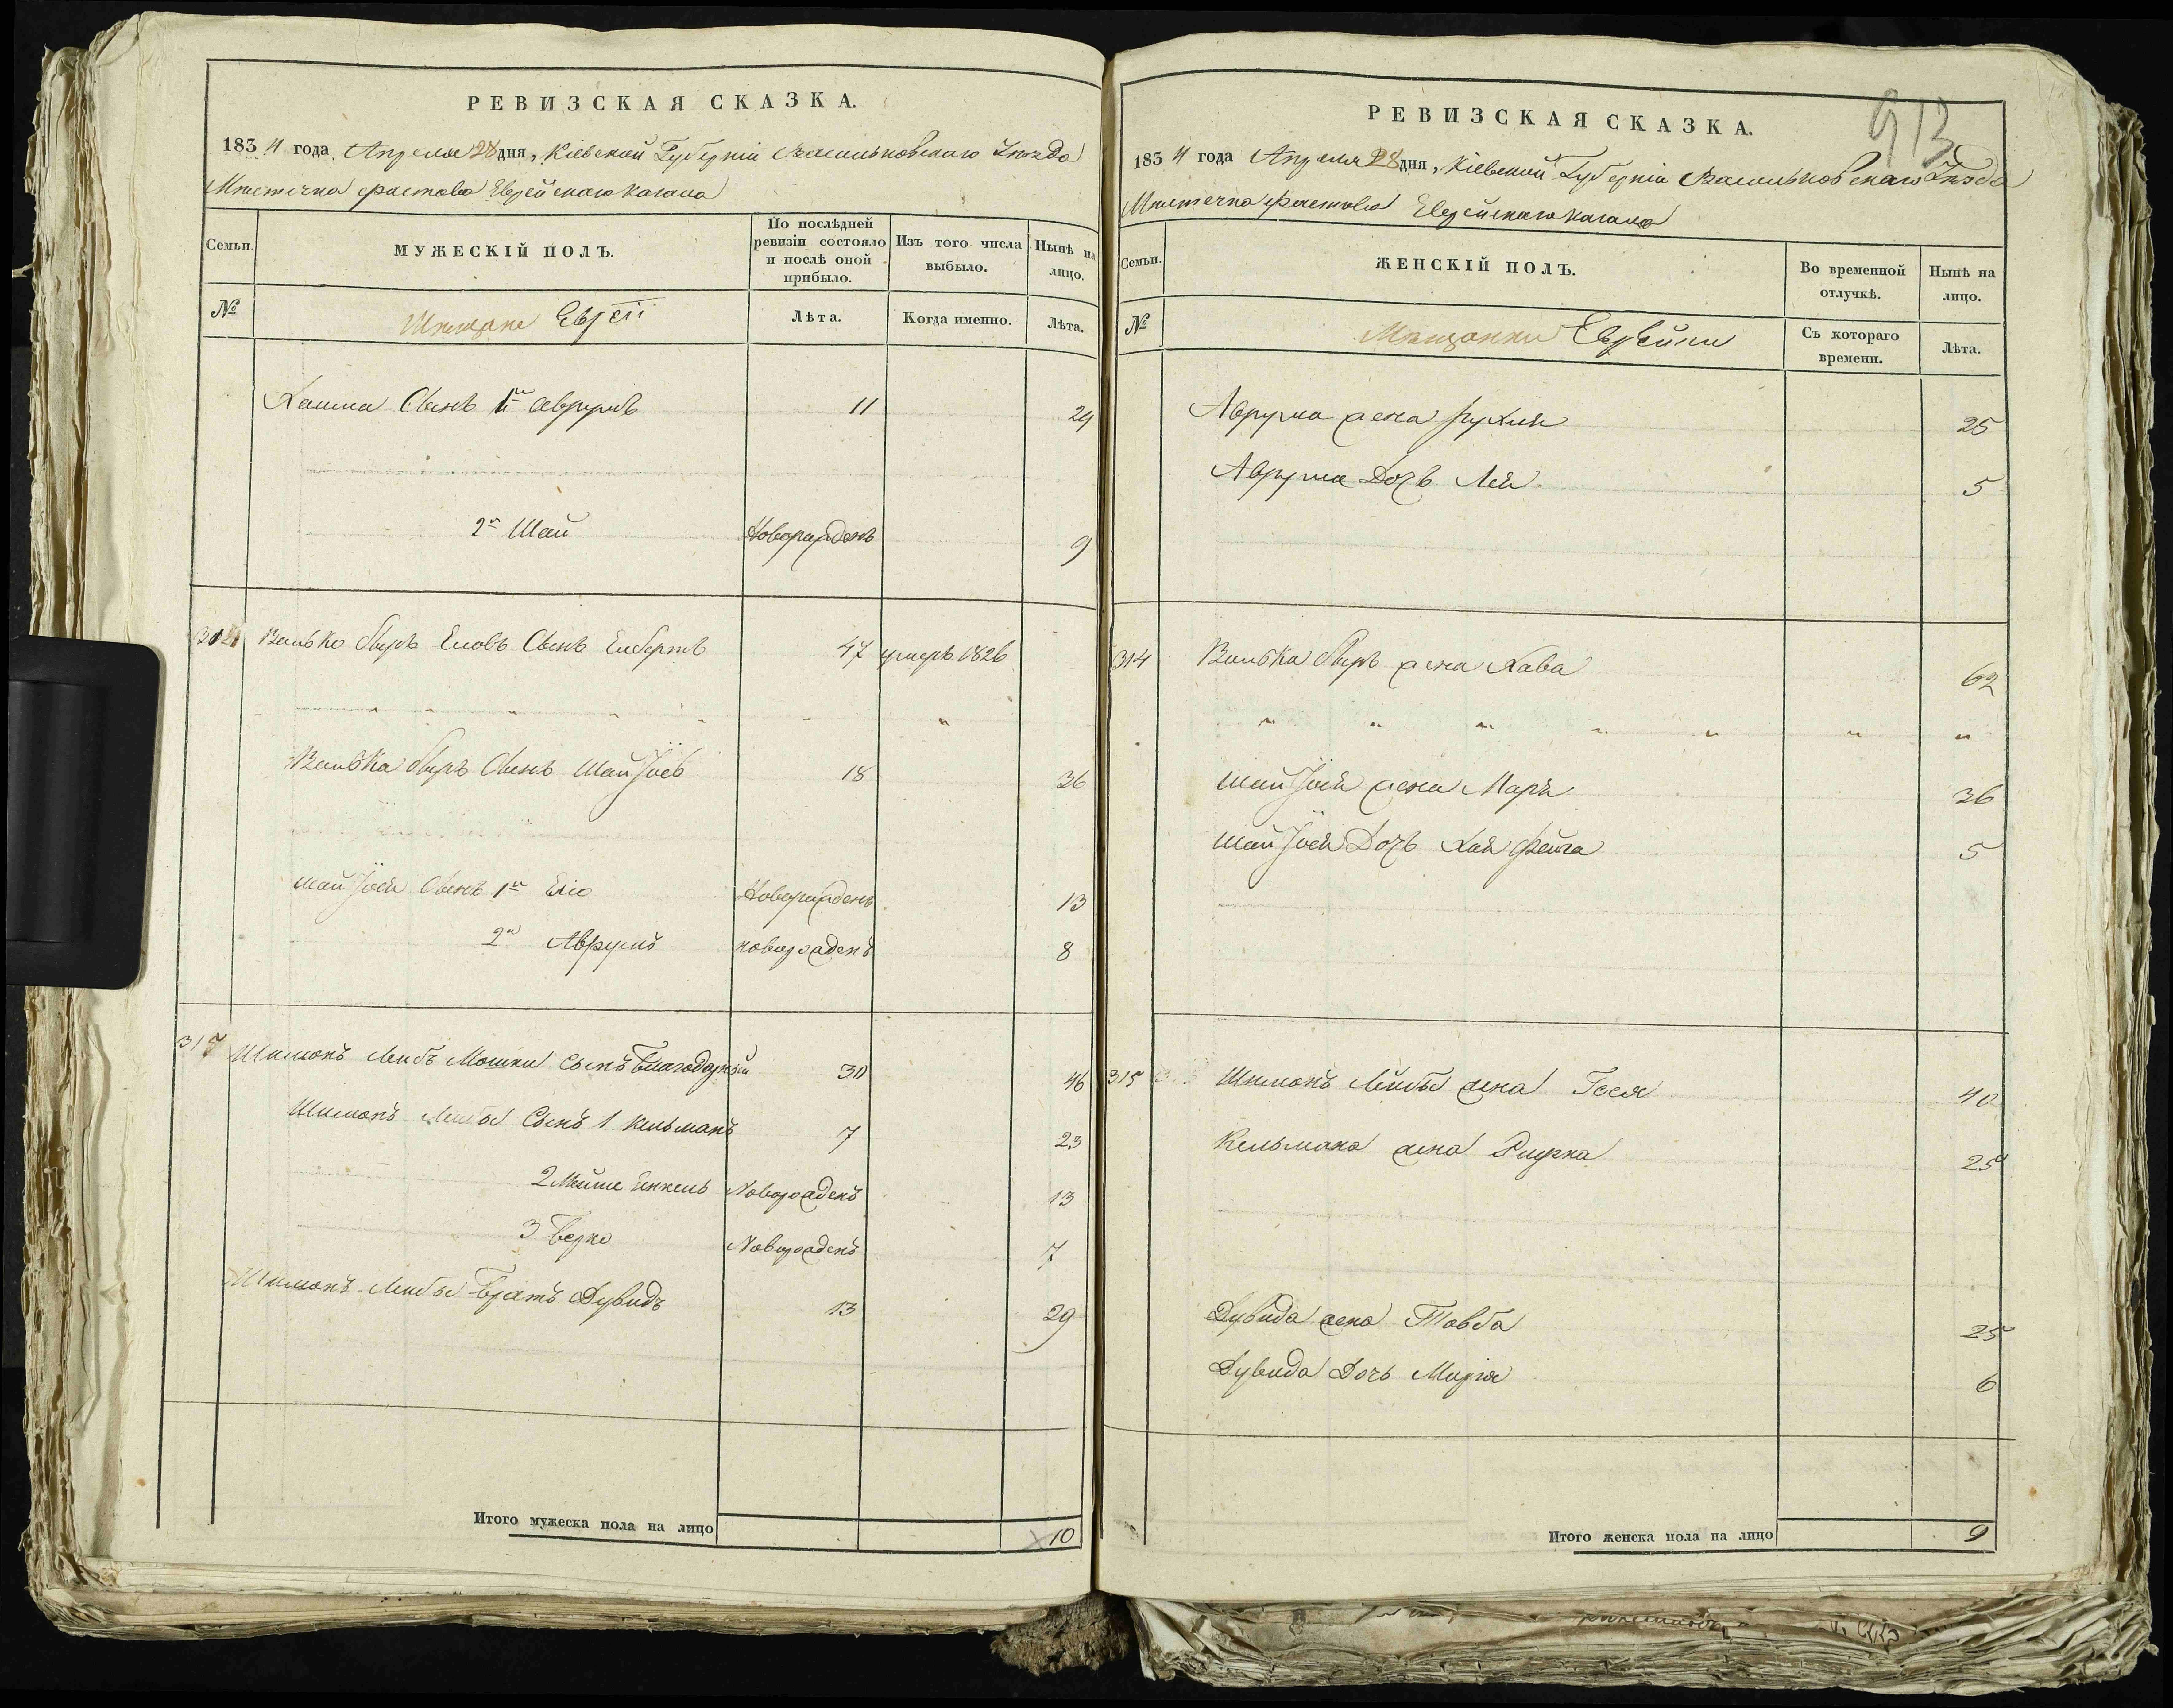 РЕВИЗСКАЯ СКАЗКА.
1834 года Апреля 28 дня, Кіевской Губерніи Васильковского Уѣзда
Мѣстечка Фастова Еврейского Кагала
Семьи.
МУЖЕСКІЙ ПОЛЪ.
По послѣдней ревизіи состояло и послѣ оной прибыло.
Изъ того числа выбыло.
Нынѣ на лицо.
№
Мѣщане Евреи
Лѣта.
Когда именно.
Лѣта.
Сынъ 1й Аврумъ 11 24
2й Шая Новорожденъ 9
Волько Сынъ 47 умеръ 1826
" " " " " " "
Волька Сынъ Шай 18 36
Шай Сынъ 1й Еліо Новорожденъ 13
2й Аврумъ новорожденъ 8
Шимонъ Лейбъ Мошки Сынъ Благодарный 30 46
Шимонъ Лейбы Сынъ 1 Кельманъ 7 23
2 Мойше Енкель Новорожденъ 13
3 Берко Новорожденъ 7
Шимонъ Лейбы Братъ Дувидъ 13 29
Итого мужеска пола на лицо 10
913
РЕВИЗСКАЯ СКАЗКА.
1834 года Апреля 28 дня, Кіевской Губерніи Васильковского Уѣзда
Мѣстечка Фастова Еврейского Кагала
Семьи.
ЖЕНСКІЙ ПОЛЪ.
Во временной отлучкѣ.
Нынѣ на лицо.
№
Мѣщанки Еврейки
Съ котораго времени.
Лѣта.
Аврума жена Рухля 25
Аврума Дочь Лея 5
314 Волька жена Хава 62
" " " " " " "
Шай жена Маря 36
Шай Дочь Хая Фейга 5
315 Шимонъ Лейбы жена Гося 40
Кельмана жена 25
Дувида жена Товба 25
Дувида Дочь Мирля 6
Итого женска пола на лицо 9